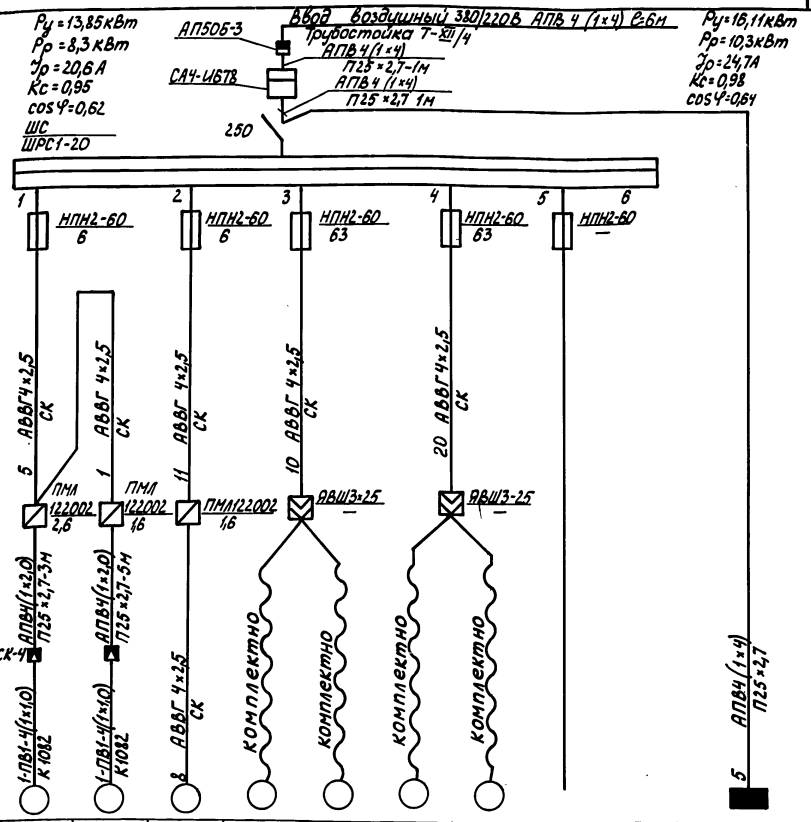 Ру=13,85кВт
Рр=8,3кВт
Јр=20,6А
Кс=0,95
cosφ=0,62
ШС
ШРС1-20
АП50Б-3
САЧ-И678
250
Ввод воздушный 380/220В АПВ 4 (1×4) ℓ=6м
Трубостойка Т-XII/4
АПВ4(1×4)
П25×2,7-1м
АПВ4 (1×4)
П25×2,7 1м
Ру=16,11кВт
Рр=10,3кВт
Јр=24,7А
Кс=0,98
cosφ=0,64
1 2 3 4 5 6
НПН2-60
6
НПН2-60
6
НПН2-60
63
НПН2-60
63
НПН2-60
—
5 АВВГ4×2,5
СК
1 АВВГ 4×2,5
СК
11 АВВГ 4×2,5
СК
10 АВВГ 4×2,5
СК
20 АВВГ4×2,5
СК
ПМЛ
122002
2,6
ПМЛ
122002
1,6
ПМЛ122002
1,6
ЯВШ3×25
—
ЯВШ3-25
—
АПВ4(1×2,0)
П25×2,7-3м
АПВ4(1×2,0)
П25×2,7-5м
СК-4
1-ПВ1-4(1×1,0)
К1082
1-ПВ1-4(1×1,0)
К1082
8 АВВГ 4×2,5
СК
комплектно
комплектно
комплектно
комплектно
АПВ4 (1×4)
П25×2,7
5